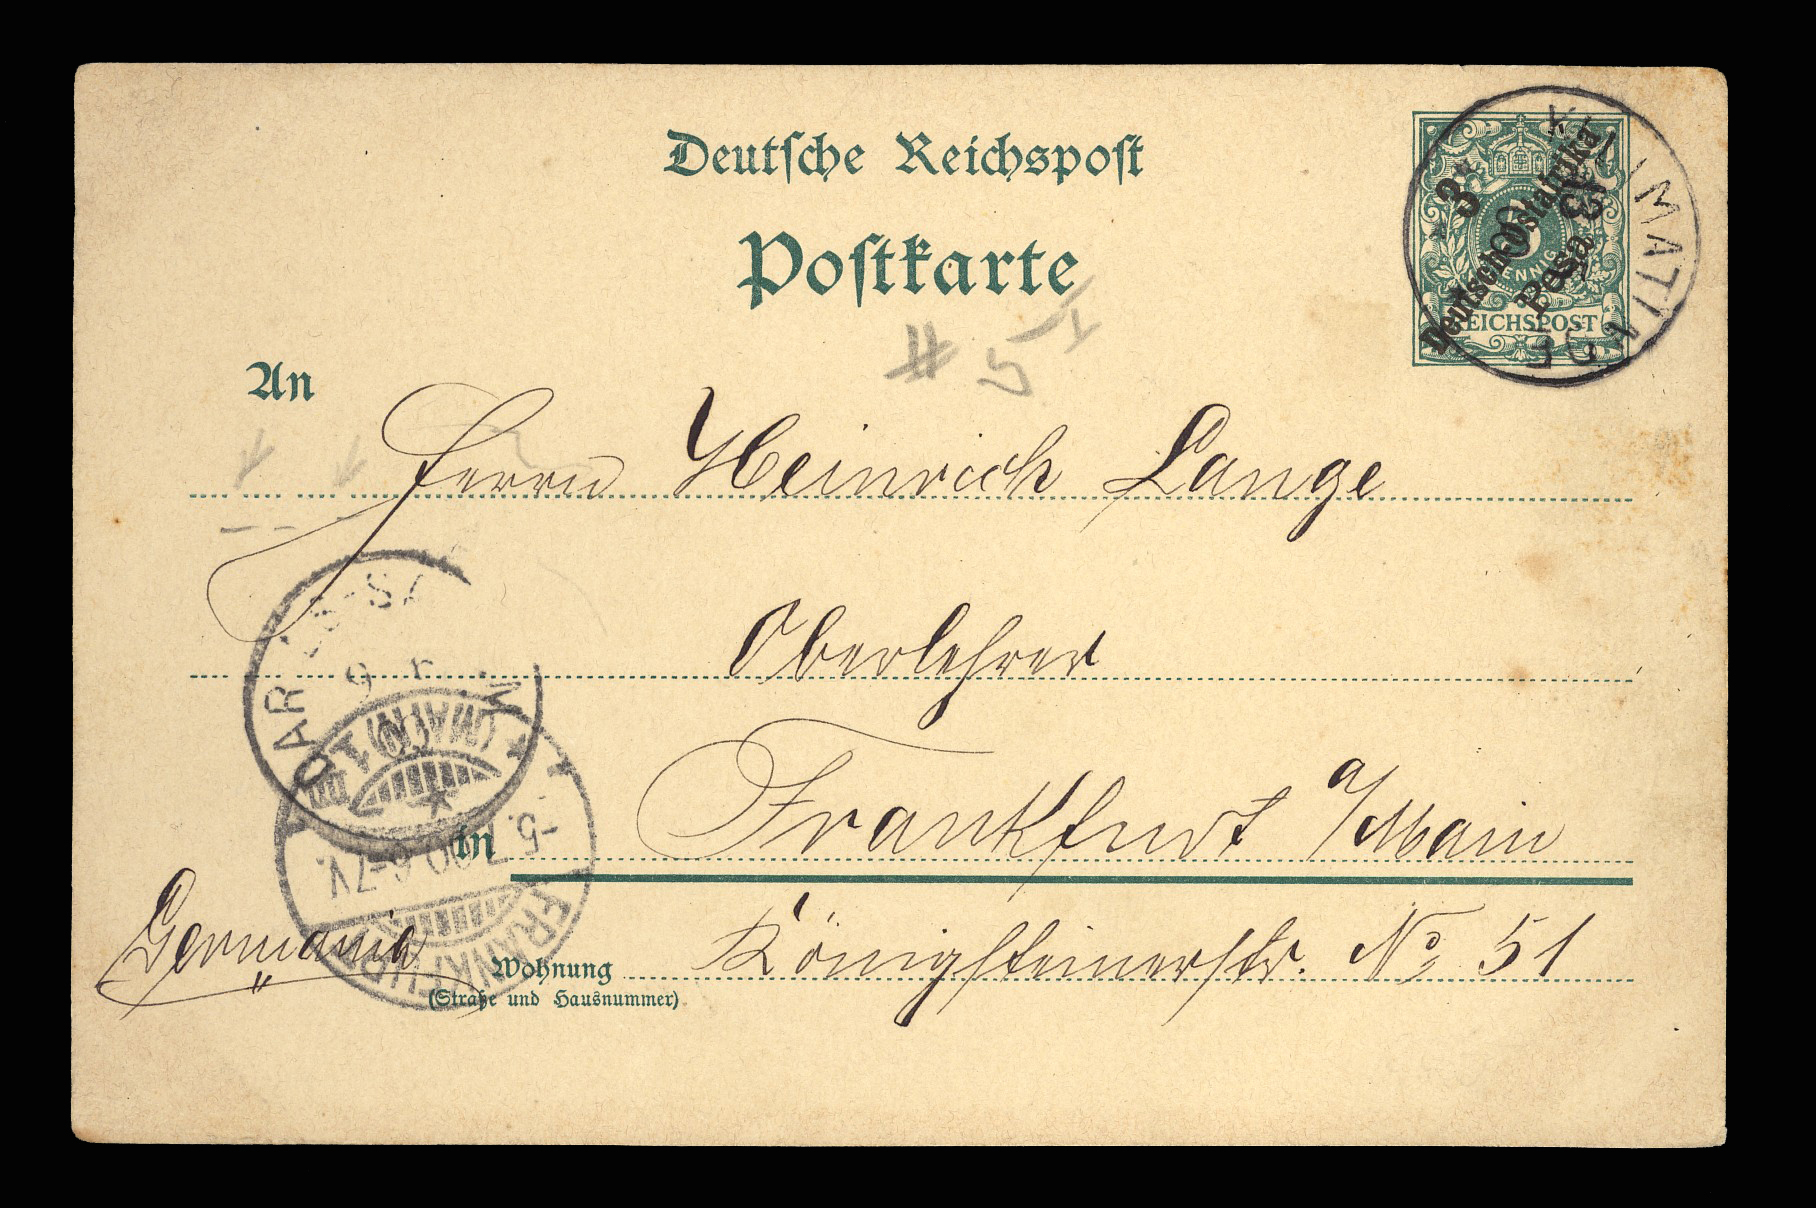 Deutsche Reichspost
Postkarte
3 Pesa 3
Deutsch-Ostafrika
PFENNIG
REICHSPOST
KILIMATINDE
# 5 I
An
Herrn Heinrich Lange
Oberlehrer
in Frankfurt a/Main
Germania
Wohnung Königsteinerstr. No 51
(Straße und Hausnummer)
FRANKFURT
(MAIN) 1
-5.7.00.6-7V.